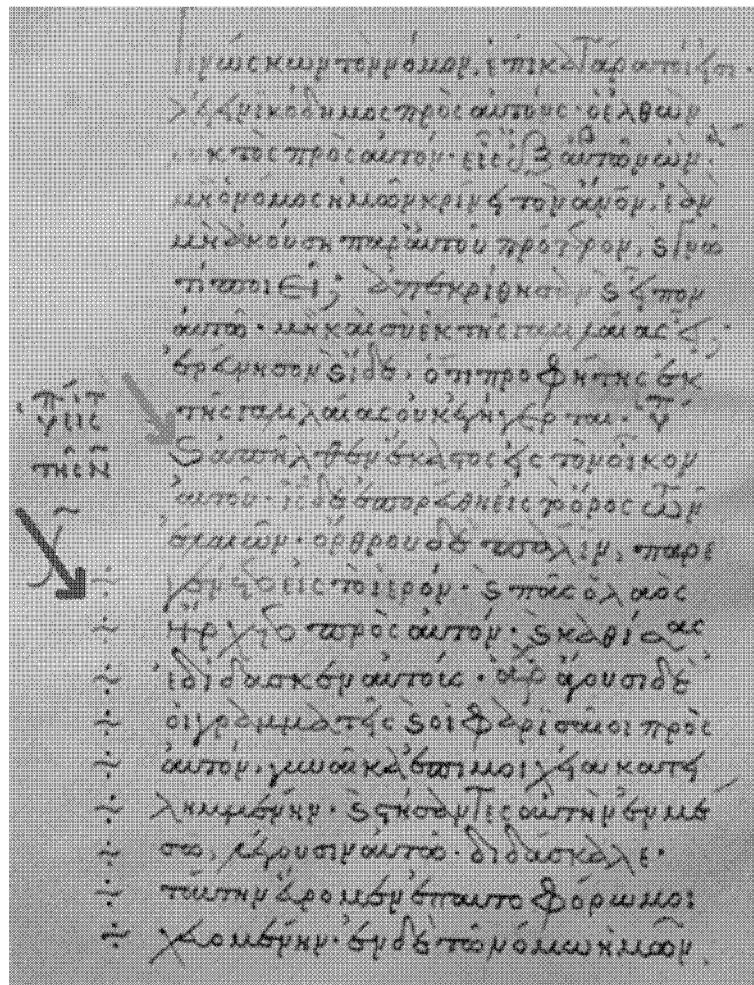 γινώσκων τὸν νόμον, ἐπικατάρατοί εἰσι·
λέγει νικόδημος πρὸς αὐτούς· ὁ ἐλθὼν
νυκτὸς πρὸς αὐτόν· εἷς ἐξ αὐτῶν ὤν·
μὴ ὁ νόμος ἡμῶν κρίνει τὸν ἄνον, ἐὰν
μὴ ἀκούση παρ' αὐτοῦ πρότερον, ϗ γνῶ
τί ποιεῖ; ἀπεκρίθησαν ϗ εἶπον
αὐτῶ· μὴ καὶ σὺ ἐκ τῆς γαλιλαίας εἶ;
ἐρεύνησον ϗ ἴδε, ὅτι προφήτης ἐκ
τῆς γαλιλαίας οὐκ ἐγήγερται·
ϗ ἀπῆλθεν ἕκαστος εἰς τὸν οἶκον
τῆς ν
αὐτοῦ· ἰς δὲ ἐπορεύθη εἰς τὸ ὄρος τῶν
ἐλαιῶν· ὄρθρου δὲ πάλιν, παρε
÷ γένετο εἰς τὸ ἱερόν· ϗ πᾶς ὁ λαὸς
÷ ἤρχετο πρὸς αὐτόν· ϗ καθίσας
÷ ἐδίδασκεν αὐτοῖς· ἄγουσι δὲ
÷ οἱ γραμματεῖς ϗ οἱ φαρισαῖοι πρὸς
÷ αὐτόν, γυναῖκα ἐπὶ μοιχεία κατει
÷ λημμένην· ϗ στήσαντες αὐτὴν ἐν μέ
÷ σω, λέγουσιν αὐτῶ· διδάσκαλε·
÷ ταύτην εὕρομεν ἐπαυτοφόρω μοι
÷ χευομένην· ἐν δὲ τῶ νόμω ἡμῶν